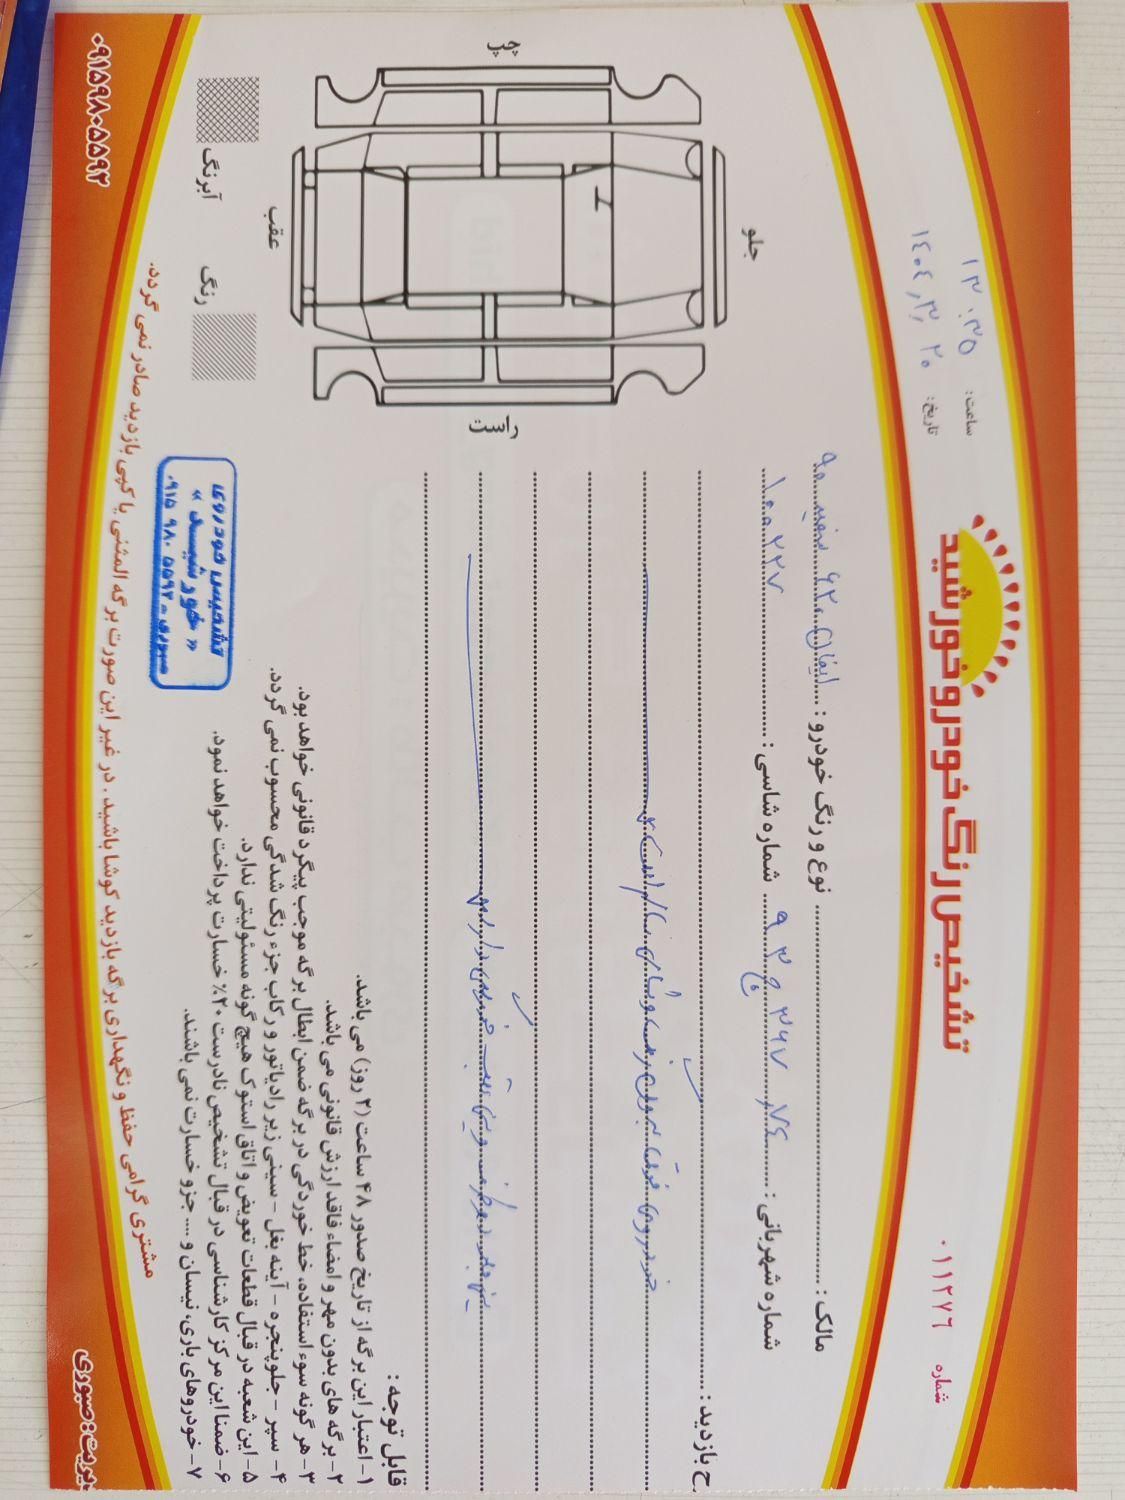 تشخیص رنگ خودرو خورشید
شماره ۰۱۱۲۷۶
ساعت: ۱۳:۳۵
تاریخ: ۱۴۰۴,۳,۲۰
مالک: نوع و رنگ خودرو: لیفان ۶۲۰ سفید ۹۰
شماره شهربانی: ۷۴ ۳۶۷ ق ۹۳ شماره شاسی: ۱۰۰۲۲۷
ح بازدید:
خودروی فوق بدون رنگ
چپ
جلو
عقب
راست
آبرنگ
رنگ
قابل توجه:
۱- اعتبار این برگه از تاریخ صدور ۴۸ ساعت (۲ روز) می باشد.
۲- برگه های بدون مهر و امضاء فاقد ارزش قانونی می باشد.
۳- هر گونه سوء استفاده، خط خوردگی در برگه ضمن ابطال برگه موجب پیگرد قانونی خواهد بود.
۴- سپر - جلوپنجره - آینه بغل - سینی زیر رادیاتور و رکاب جزء رنگ شدگی محسوب نمی گردد.
۵- این شعبه در قبال قطعات تعویض و اتاق استوک هیچ گونه مسئولیتی ندارد.
۶- ضمنا این مرکز کارشناسی در قبال تشخیص نادرست ۲۰٪ خسارت پرداخت خواهد نمود.
۷- خودروهای باری، نیسان و .... جزو خسارت نمی باشند.
تشخیص خودروی
« خورشید »
صبوری - ۵۵۹۲ ۹۸۰ ۰۹۱۵
مشتری گرامی حفظ و نگهداری برگه بازدید کوشا باشید. در غیر این صورت برگه المثنی یا کپی بازدید صادر نمی گردد.
مدیریت: صبوری
۰۹۱۵۹۸۰۵۵۹۲